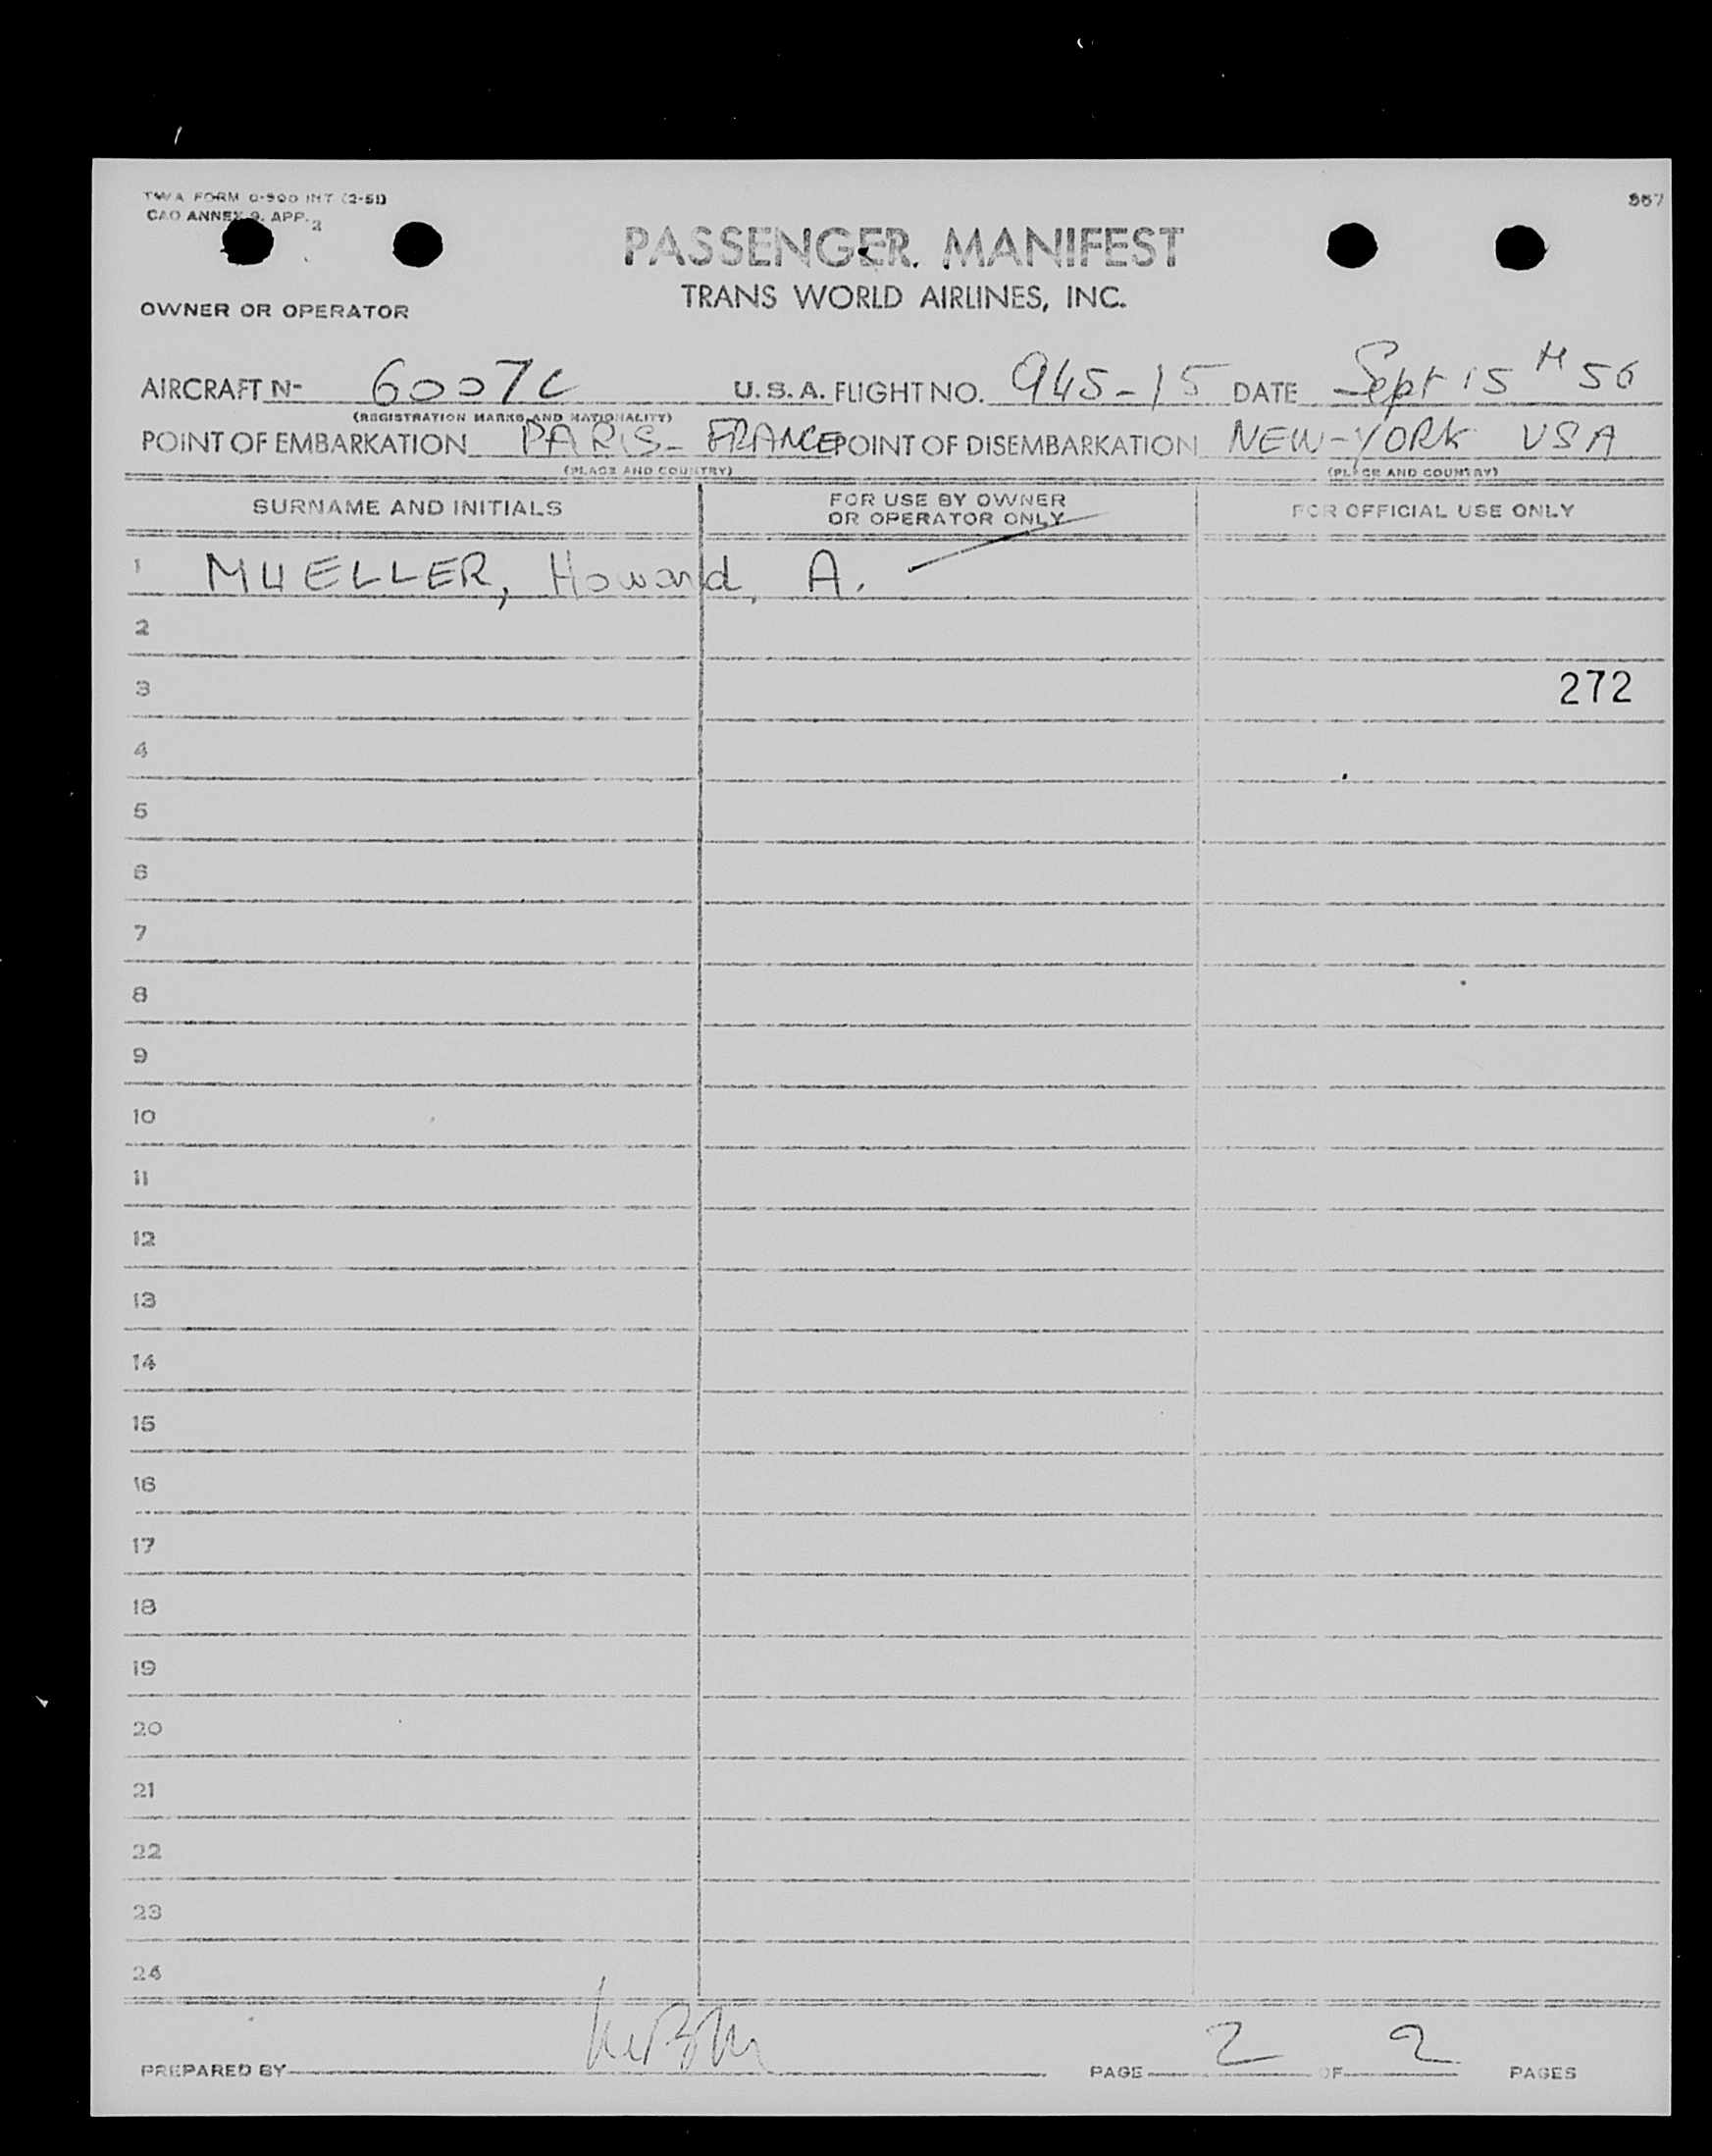 TWA FORM O-900 INT (2-51)
CAO ANNEX 9. APP. 2
PASSENGER MANIFEST
TRANS WORLD AIRLINES, INC.
OWNER OR OPERATOR
AIRCRAFT N- 6007C U.S.A. FLIGHT NO. 945-15 DATE Sept 15 H 56
(REGISTRATION MARKS AND NATIONALITY)
POINT OF EMBARKATION PARIS- FRANCE POINT OF DISEMBARKATION NEW-YORK USA
(PLACE AND COUNTRY) (PLACE AND COUNTRY)
SURNAME AND INITIALS FOR USE BY OWNER OR OPERATOR ONLY FOR OFFICIAL USE ONLY
1 MUELLER, Howard, A.
2
3 272
4
5
6
7
8
9
10
11
12
13
14
15
16
17
18
19
20
21
22
23
24
PREPARED BY PAGE 2 OF 2 PAGES